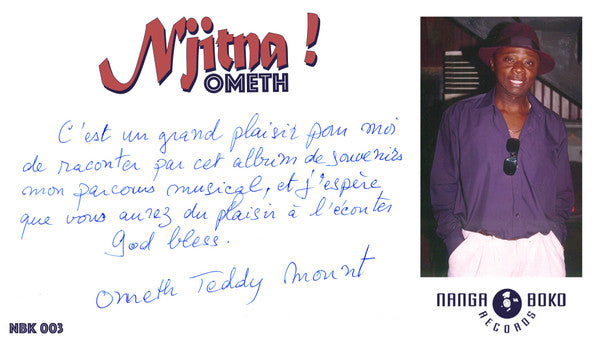 Njitna !
OMETH
C'est un grand plaisir pour moi
de raconter par cet album de souvenirs
mon parcours musical, et j'espère
que vous aurez du plaisir à l'écouter
God bless.
Ometh Teddy Mount
NANGA BOKO
RECORDS
NBK 003